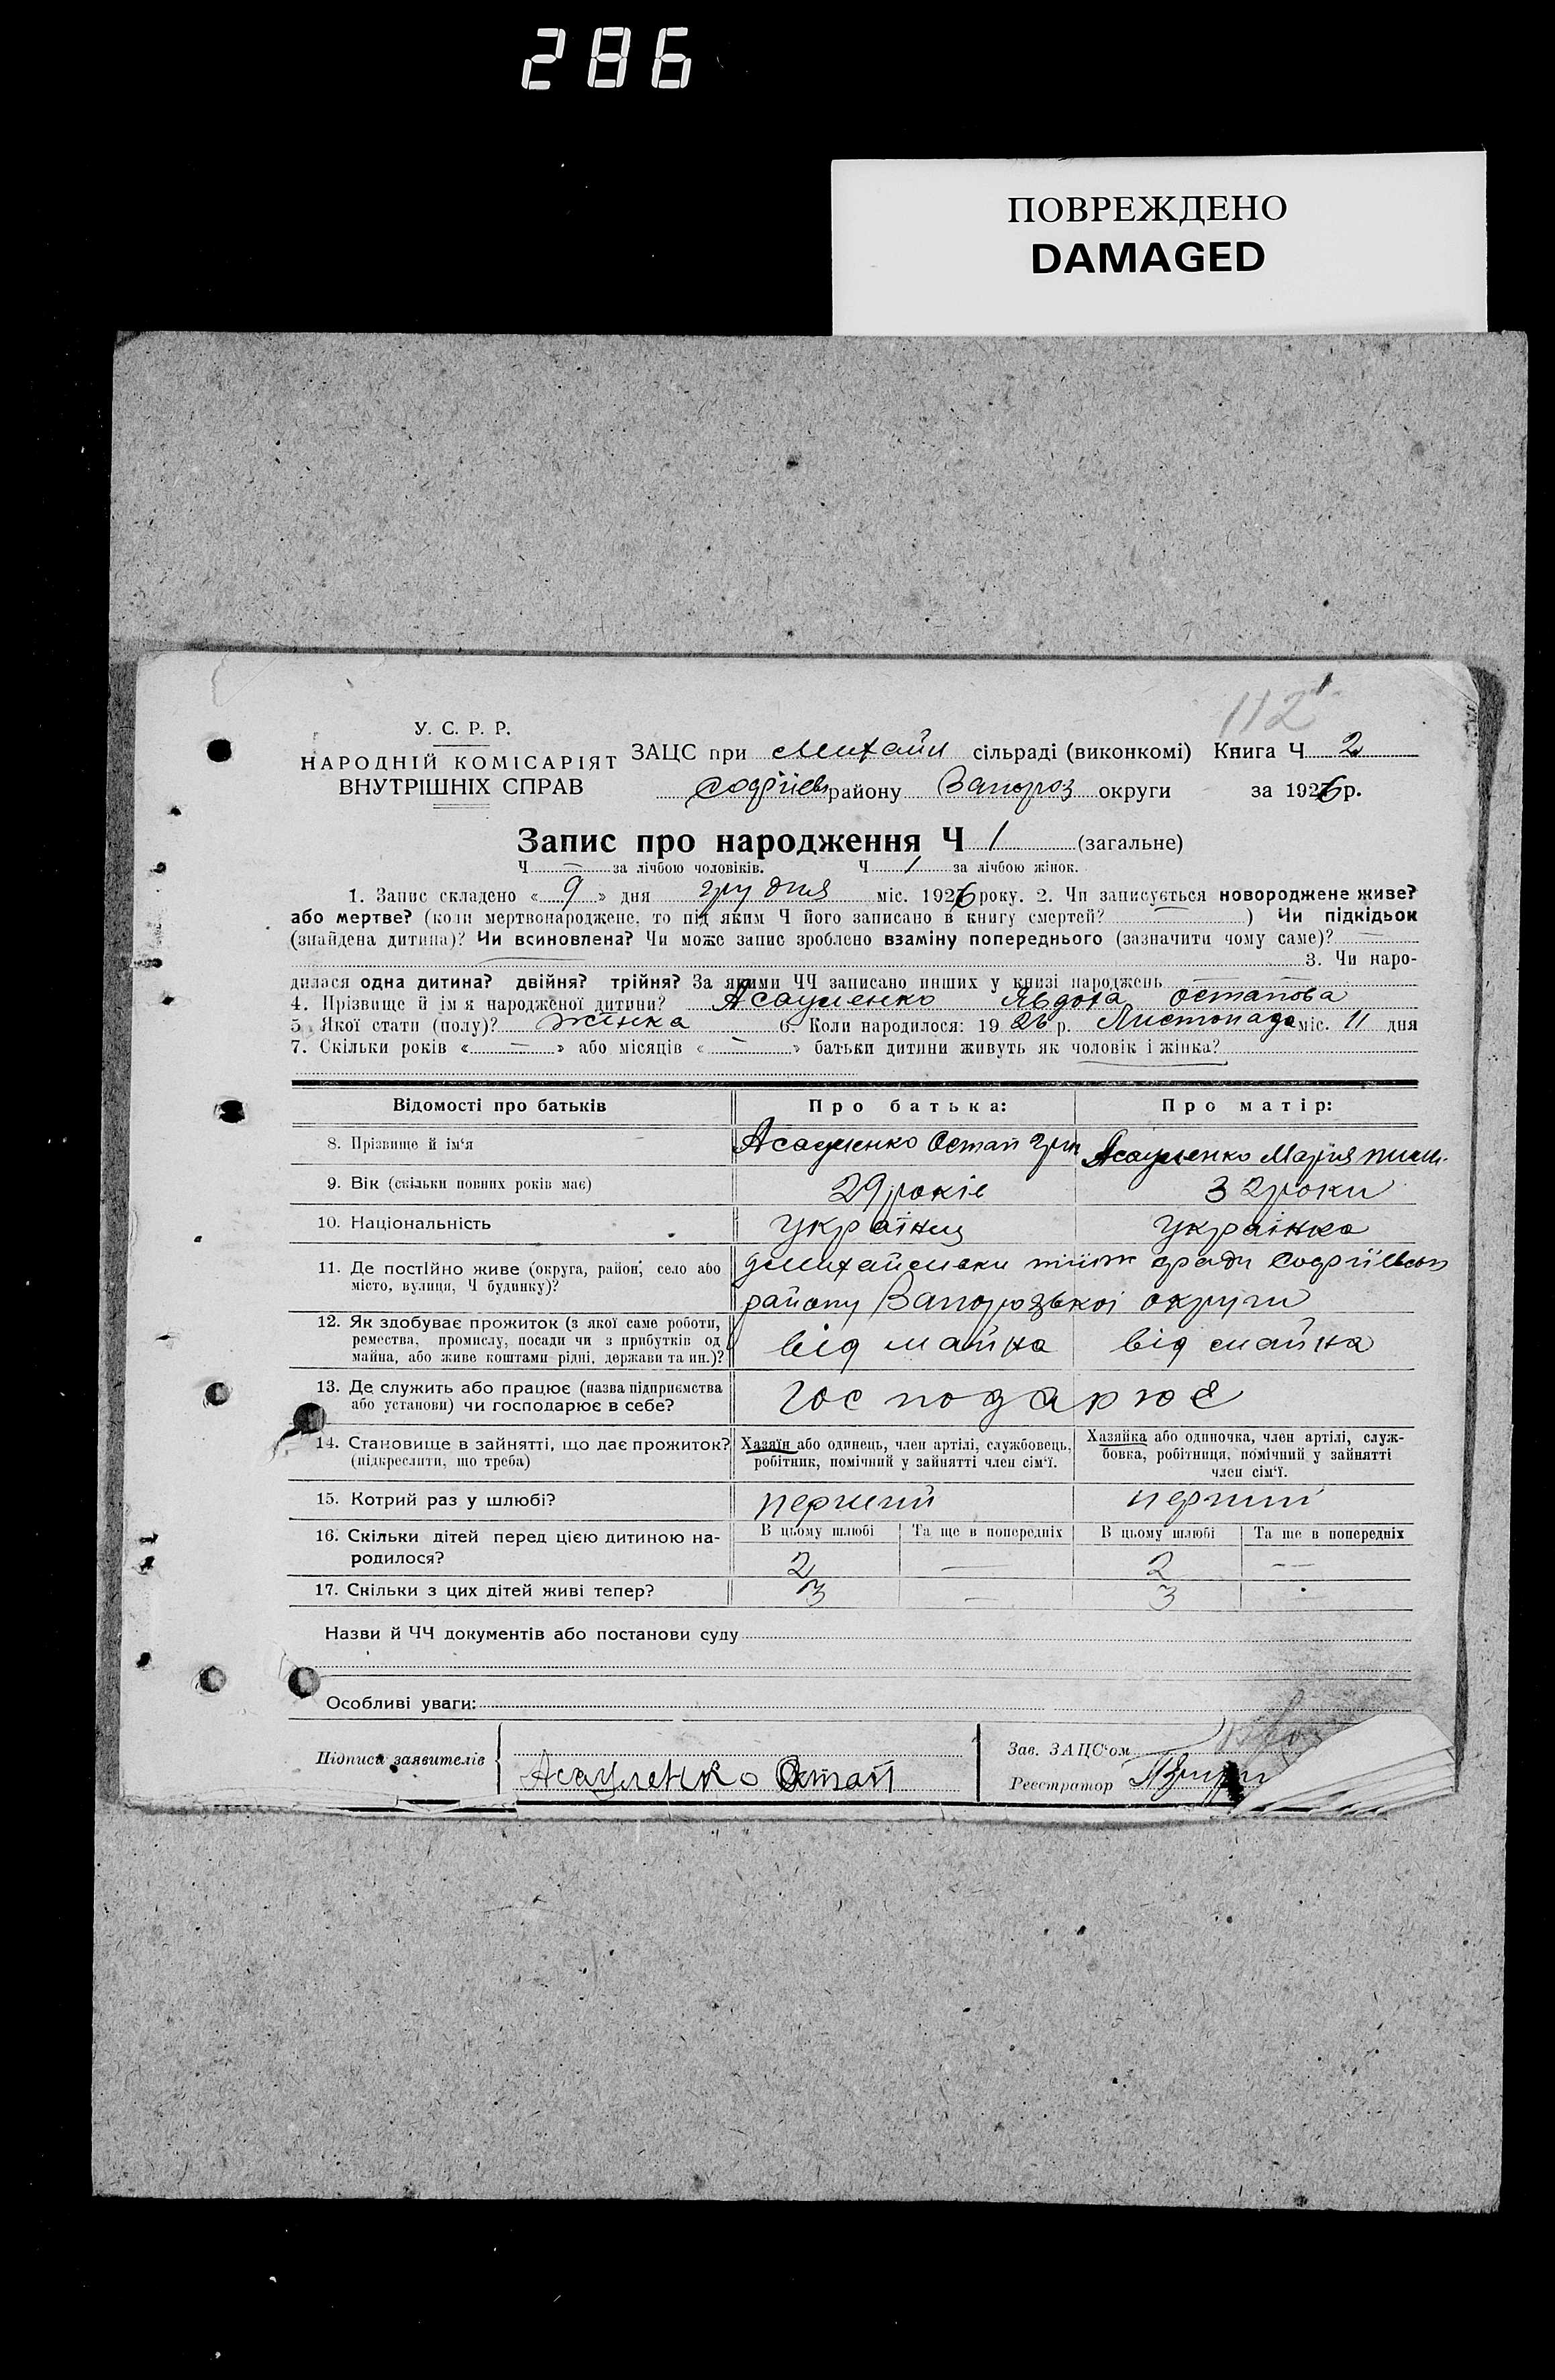 286
ПОВРЕЖДЕНО
DAMAGED
112
У. С. Р. Р.
НАРОДНІЙ КОМІСАРІЯТ
ВНУТРІШНІХ СПРАВ
ЗАЦС при Михайл сільраді (виконкомі) Книга Ч 2
Софіїев району Запороз округи за 1926 р.
Запис про народження Ч 1 (загальне)
Ч — за лічбою чоловіків. Ч 1 за лічбою жінок.
1. Запис складено « 9 » дня грудня міс. 1926 року. 2. Чи записується новороджене живе?
або мертве? (коли мертвонароджене, то під яким Ч його записано в книгу смертей? — ) Чи підкідьок
(знайдена дитина)? Чи всиновлена? Чи може запис зроблено взаміну попереднього (зазначити чому саме)? —
3. Чи наро-
дилася одна дитина? двійня? трійня? За якими ЧЧ записано инших у книзі народжень
4. Прізвище й ім'я народженої дитини? Асауленко Явдоха Остапова
5. Якої стати (полу)? жінка 6. Коли народилося: 1926 р. Листопада міс. 11 дня
7. Скільки років « — » або місяців « — » батьки дитини живуть як чоловік і жінка?
Відомості про батьків Про батька: Про матір:
8. Прізвище й ім'я Асауленко Остап Гри Асауленко Мария
9. Вік (скільки повних років має) 29 років 32 роки
10. Національність Українец Українка
11. Де постійно живе (округа, район, село або
місто, вулиця, Ч будинку)?
району Запорозької округи
12. Як здобуває прожиток (з якої саме роботи,
ремества, промислу, посади чи з прибутків од
майна, або живе коштами рідні, держави та ин.)?
від майна від майна
13. Де служить або працює (назва підприємства
або установи) чи господарює в себе?
господарює
14. Становище в зайнятті, що дає прожиток?
(підкреслити, що треба)
Хазяїн або одинець, член артілі, службовець,
робітник, помічний у зайнятті член сім'ї.
Хазяйка або одиночка, член артілі, служ-
бовка, робітниця, помічний у зайнятті
член сім'ї.
15. Котрий раз у шлюбі? перший перший
16. Скільки дітей перед цією дитиною на-
родилося?
В цьому шлюбі Та ще в попередніх В цьому шлюбі Та ще в попередніх
2 — 2 —
17. Скільки з цих дітей живі тепер? 3 — 3 —
Назви й ЧЧ документів або постанови суду
Особливі уваги:
Підписи заявителів
Асауленко Остап
Зав. ЗАЦС'ом
Реєстратор